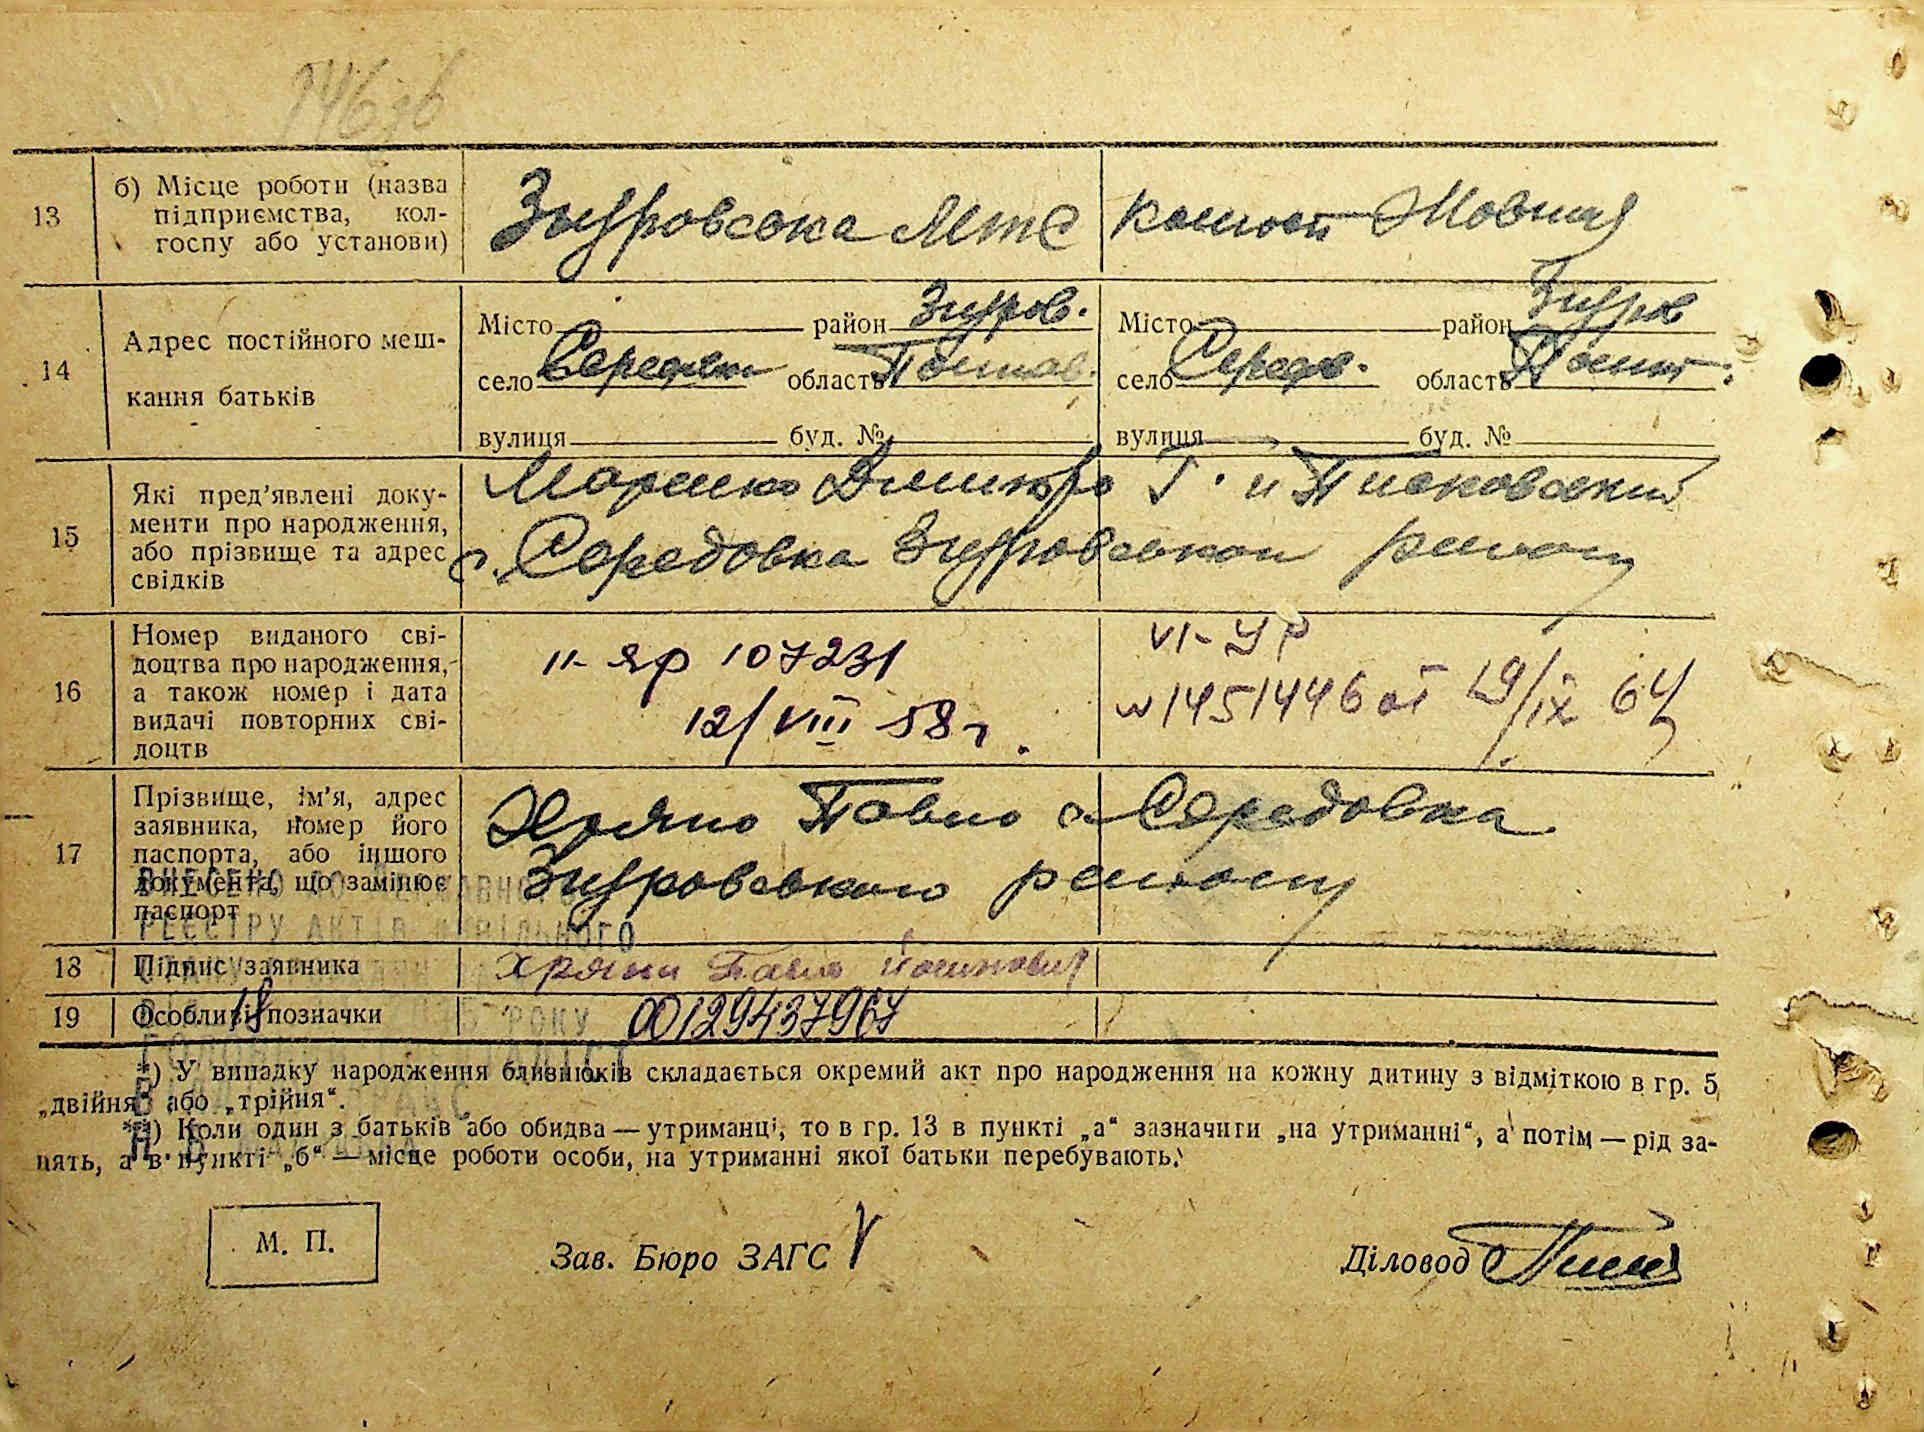 13
б) Місце роботи (назва
підприємства, кол-
госпу або установи)
Згуровська МТС
Жовтня
14
Адрес постійного меш-
кання батьків
Місто район Згуров.
село область Полтав.
вулиця буд. №
Місто район Згуров
село Серед. область Полт.
вулиця буд. №
15
Які пред’явлені доку-
менти про народження,
або прізвище та адрес
свідків
Марченко Дмитро Г. и
с. Середовка Згуровского району
16
Номер виданого сві-
доцтва про народження,
а також номер і дата
видачі повторних сві-
доцтв
II-ЯР 107231
12/VIII 58 г.
VI-УР
N 1451446 от 19/IX 64
17
Прізвище, ім’я, адрес
заявника, номер його
паспорта, або іншого
документа, що замінює
паспорт
Павло с Середовка
Згуровского району
ВНЕСЕНО ДО ДЕРЖАВНОГО
РЕЄСТРУ АКТІВ ЦИВІЛЬНОГО
18
Підпис заявника
Павло
19
Особливі позначки
00129437967
РОКУ
*) У випадку народження близнюків складається окремий акт про народження на кожну дитину з відміткою в гр. 5
„двійня“ або „трійня“.
**) Коли один з батьків або обидва — утриманці, то в гр. 13 в пункті „а“ зазначити „на утриманні“, а потім — рід за-
нять, а в пункті „б“ — місце роботи особи, на утриманні якої батьки перебувають.
М. П.
Зав. Бюро ЗАГС
Діловод